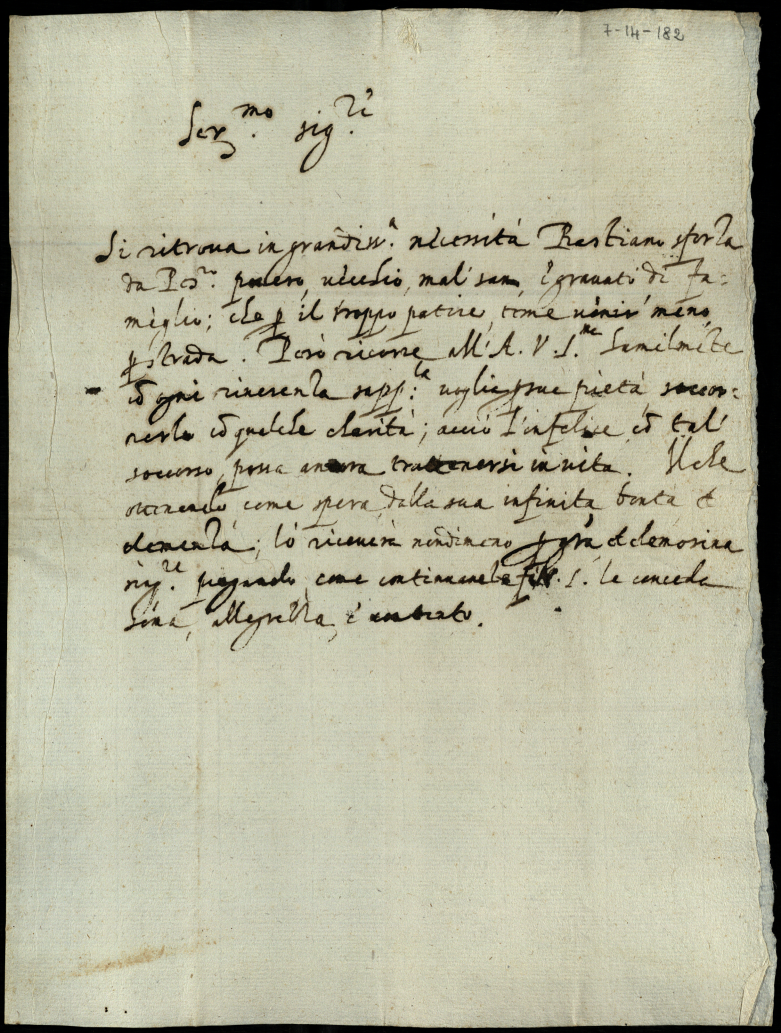 7-14-182
Ser.mo sig.re
Si ritroua in grandiss.a necessità Bastiano sforza
da pouero, uecchio, mal' sano, e grauato di fa=
miglia; che p il troppo patire, teme uenir' meno
p strada. Però ricorre all' A. V. S.ma humilmēte
cō ogni riuerenza supp.la uoglia p sue pietà, soccor=
rerlo cō qualche charità; acciò l'infelice cō tal'
soccorso, possa ancora trattenersi in uita. Ilche
ottenendo come spera, dalla sua infinita bontà et
clemenza; lo riceuerà nondimeno p gr̄a, et elemosina
pregando come continuamente S. le conceda
allegrezza, e contento.